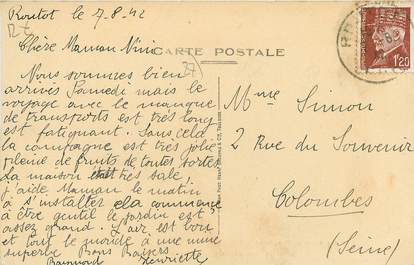 Routot le 7-8-42
Chère Maman Nini
CARTE POSTALE
Nous sommes bien
arrivés Samedi mais le
voyage avec le manque
de transports est très long
est fatiguant. Sans cela
la campagne est très jolie
pleine de fruits de toutes sortes
La maison était très sale,
j'aide Maman le matin
à s'installer cela commence
à être gentil le jardin est
assez grand. L'air est bon
et tout le monde a une mine
superbe Bons Baisers
Raymond Henriette
Mme Simon
2 Rue du Souvenir
Colombes
(Seine)
1F20